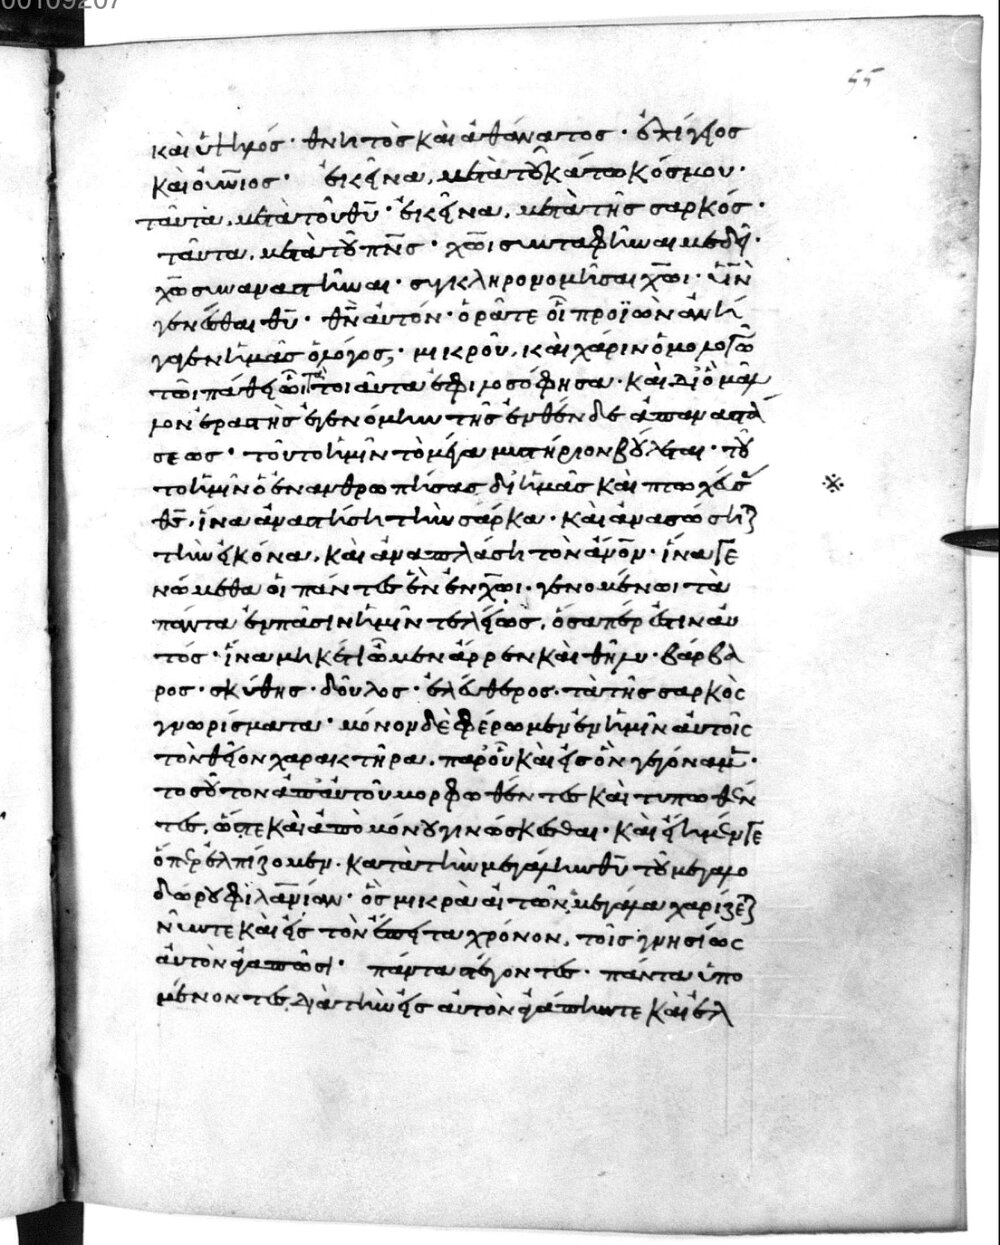 00109207
55
καὶ ὑψηλός· θνητὸς καὶ ἀθάνατος· ἐπίγειος
καὶ οὐνιος· ἐκεῖνα, μετὰ τοῦ κάτω κόσμου·
ταῦτα, μετὰ τοῦ θῦ· ἐκεῖνα, μετὰ τῆς σαρκός·
ταῦτα, μετὰ τοῦ πνς· χωι συνταφῆναι με δεῖ·
χω συναναστῆναι· συγκληρονομῆσαι χωι· υν
γενέσθαι θυ· θν αὐτόν· ὁρᾶτε οἷ προϊὼν ἀνή
γαγεν ἡμᾶς ὁ λόγος; μικροῦ, καὶ χάριν ὁμολογῶ
τῶι πάθει ὧι τοιαῦτα ἐφιλοσόφησα· καὶ δι' ὃ μᾶλ
λον ἐραστὴς ἐγενόμην τῆς ἐνθένδε ἀπαναστά
σεως· τοῦτο ἡμῖν τὸ μέγα μυστήριον βούλεται· τοῦ
το ἡμῖν ὁ ἐνανθρωπήσας δι' ἡμᾶς καὶ πτωχεύσ
θς, ἵνα ἀναστήσῃ τὴν σάρκα· καὶ ἀνασώσηται
τὴν εἰκόνα, καὶ ἀναπλάσῃ τὸν ἄνον· ἵνα γε
νώμεθα οἱ πάντες ἓν ἐν χωι· γενομένωι τὰ
πάντα ἐν πᾶσιν ἡμῖν τελείως, ὅσα πέρ ἐστιν αὐ
τός· ἵνα μηκέτι ὦμεν ἄρρεν καὶ θῆλυ· βάρβα
ρος· σκύθης· δοῦλος· ἐλεύθερος· τὰ τῆς σαρκὸς
γνωρίσματα· μόνον δὲ φέρωμεν ἐν ἡμῖν αὐτοῖς
τὸν θεῖον χαρακτῆρα, παρ' οὗ καὶ εἰς ὃν γεγόναμεν·
τοσοῦτον ἀπ' αὐτοῦ μορφωθέντες καὶ τυπωθέν
τες, ὥστε καὶ ἀπὸ μόνου γινώσκεσθαι· καὶ εἴημέν γε
ὅπερ ἐλπίζομεν· κατὰ τὴν μεγάλην θυ τοῦ μεγαλο
δώρου φιλανίαν· ὃς μικρὰ αἰτῶν, μεγάλα χαρίζεται
νῦν τε καὶ εἰς τὸν ἔπειτα χρόνον, τοῖς γνησίως
αὐτὸν ἀγαπῶσι· πάντα στέγοντες· πάντα ὑπο
μένοντες, διὰ τὴν εἰς αὐτὸν ἀγάπην τε καὶ ἐλ